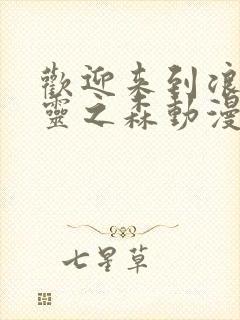 歡迎来到浪
靈之森動漫
七星草